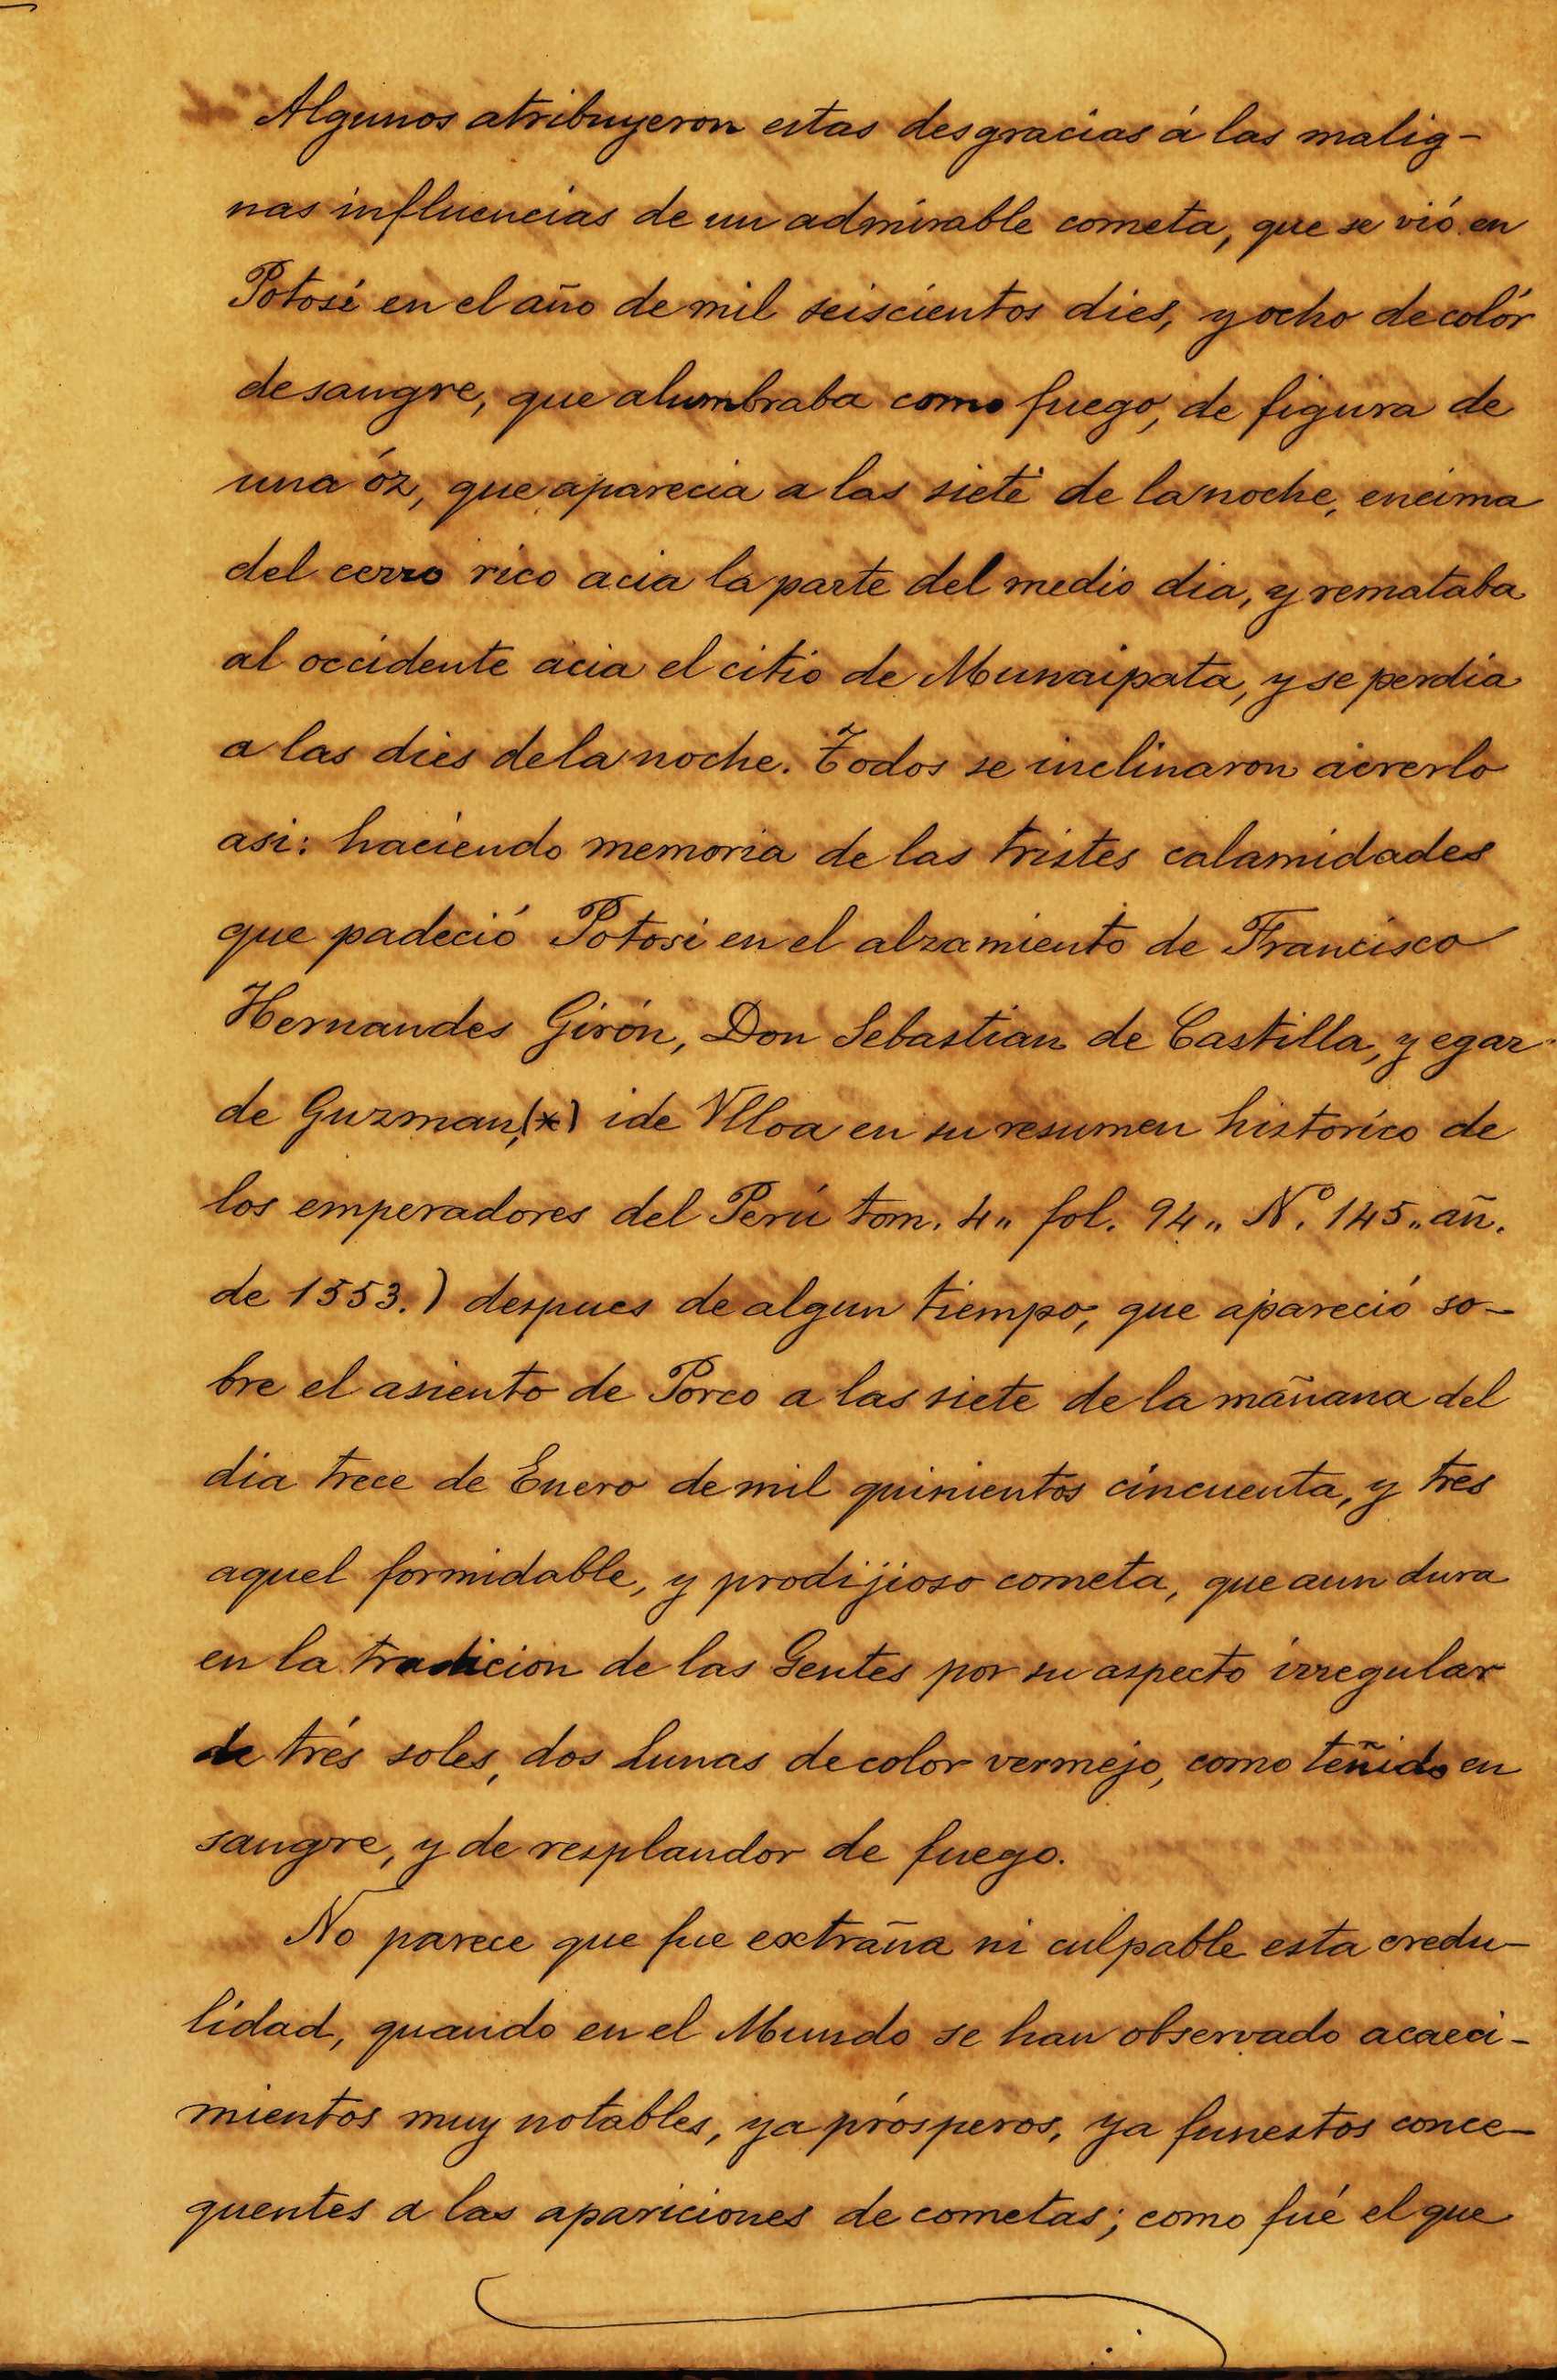 Algunos atribuyeron estas desgracias á las malig-
nas influencias de un admirable cometa, que se vió en
Potosí en el año de mil seiscientos dies, y ocho de colór
de sangre, que alumbraba como fuego, de figura de
una óz, que aparecia a las siete de la noche, encima
del cerro rico acia la parte del medio dia, y remataba
al occidente acia el citio de Munaipata, y se perdia
a las dies de la noche. Todos se inclinaron acrerlo
asi: haciendo memoria de las tristes calamidades
que padeció Potosi en el alzamiento de Francisco
Hernandes Girón, Don Sebastian de Castilla, y egar
de Guzman,(*) ide Vlloa en su resumen historico de
los emperadores del Perú tom. 4,, fol. 94,, N.º 145,, añ.
de 1553.) despues de algun tiempo, que apareció so-
bre el asiento de Porco a las siete de la mañana del
dia trece de Enero de mil quinientos cincuenta, y tres
aquel formidable, y prodijioso cometa, que aun dura
en la tradicion de las Gentes por su aspecto irregular
de trés soles, dos Lunas de color vermejo, como teñido en
sangre, y de resplandor de fuego.
No parece que fue extraña ni culpable esta credu-
lidad, quando en el Mundo se han observado acaeci-
mientos muy notables, ya prósperos, ya funestos conce-
quentes a las apariciones de cometas; como fué el que